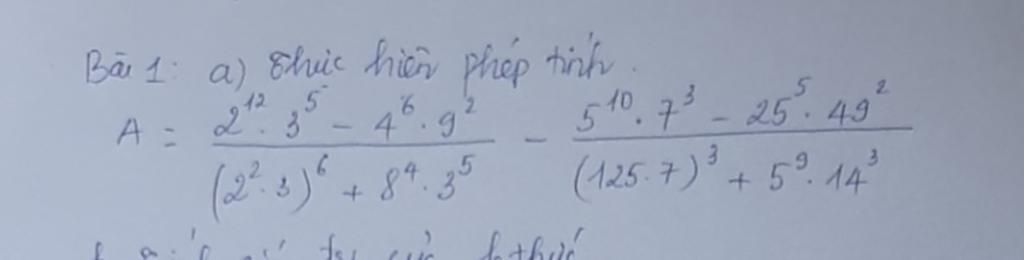 Bài 1: a) Thực hiện phép tính.
A = \frac{2^{12} \cdot 3^5 - 4^6 \cdot 9^2}{(2^2 \cdot 3)^6 + 8^4 \cdot 3^5} - \frac{5^{10} \cdot 7^3 - 25^5 \cdot 49^2}{(125 \cdot 7)^3 + 5^9 \cdot 14^3}